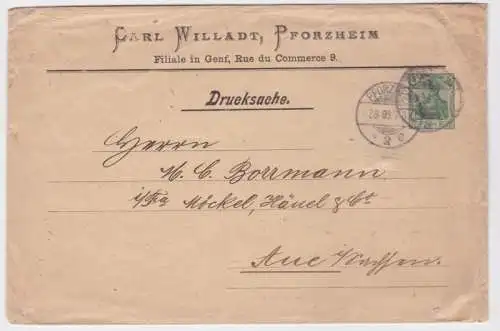 CARL WILLADT, PFORZHEIM
Filiale in Genf, Rue du Commerce 9.
Drucksache.
PFORZ
Herrn
M. C. Borrmann
i/Fa Möckel, Händel & Co
Aue Sachsen.